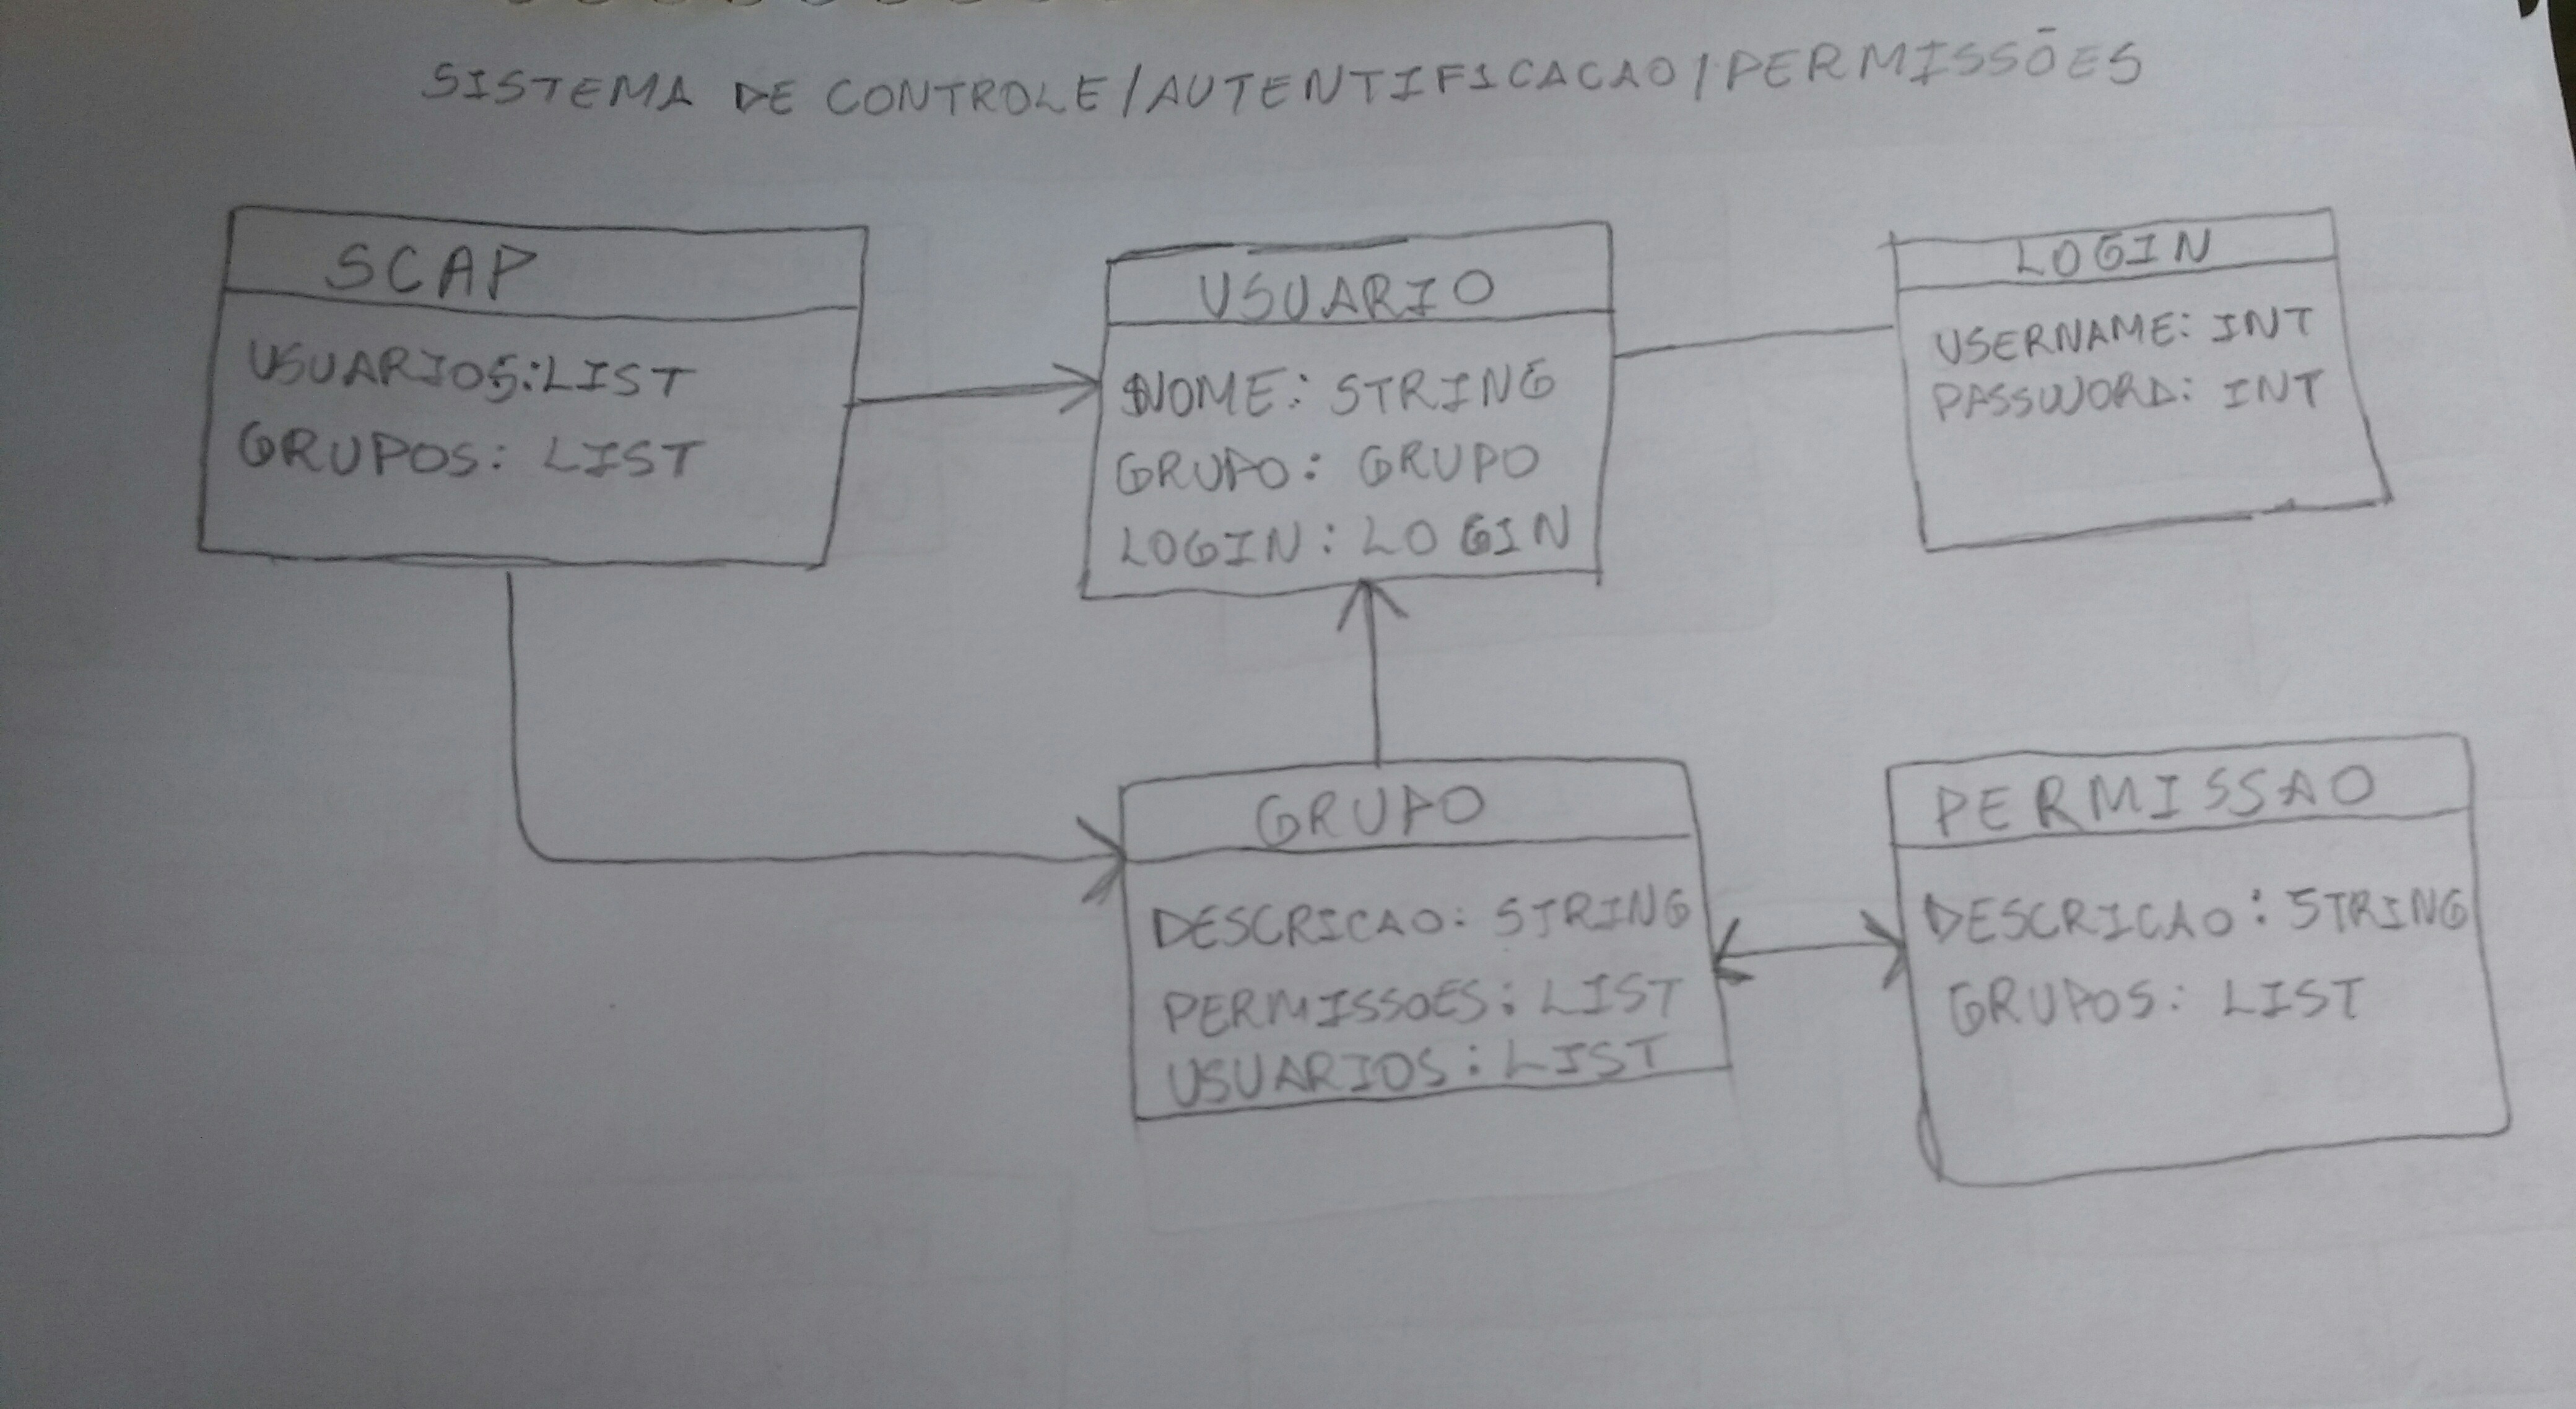 SISTEMA DE CONTROLE/AUTENTIFICACAO/PERMISSÕES
SCAP
USUARIOS:LIST
GRUPOS: LIST
USUARIO
NOME: STRING
GRUPO: GRUPO
LOGIN: LOGIN
LOGIN
USERNAME: INT
PASSWORD: INT
GRUPO
DESCRICAO: STRING
PERMISSOES: LIST
USUARIOS: LIST
PERMISSAO
DESCRICAO: STRING
GRUPOS: LIST